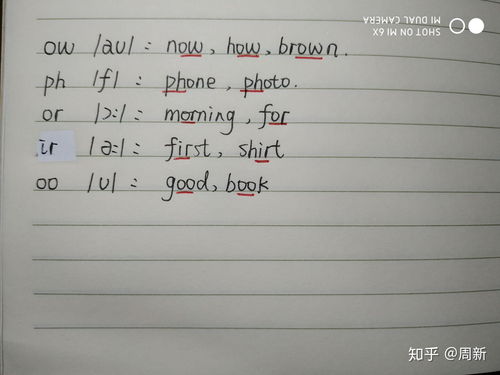 SHOT ON MI 6X
MI DUAL CAMERA
ow /au/: now, how, brown.
ph /f/: phone, photo.
or /ɔ:/: morning, for
ir /ə:/: first, shirt
oo /u/: good, book
知乎 @周新